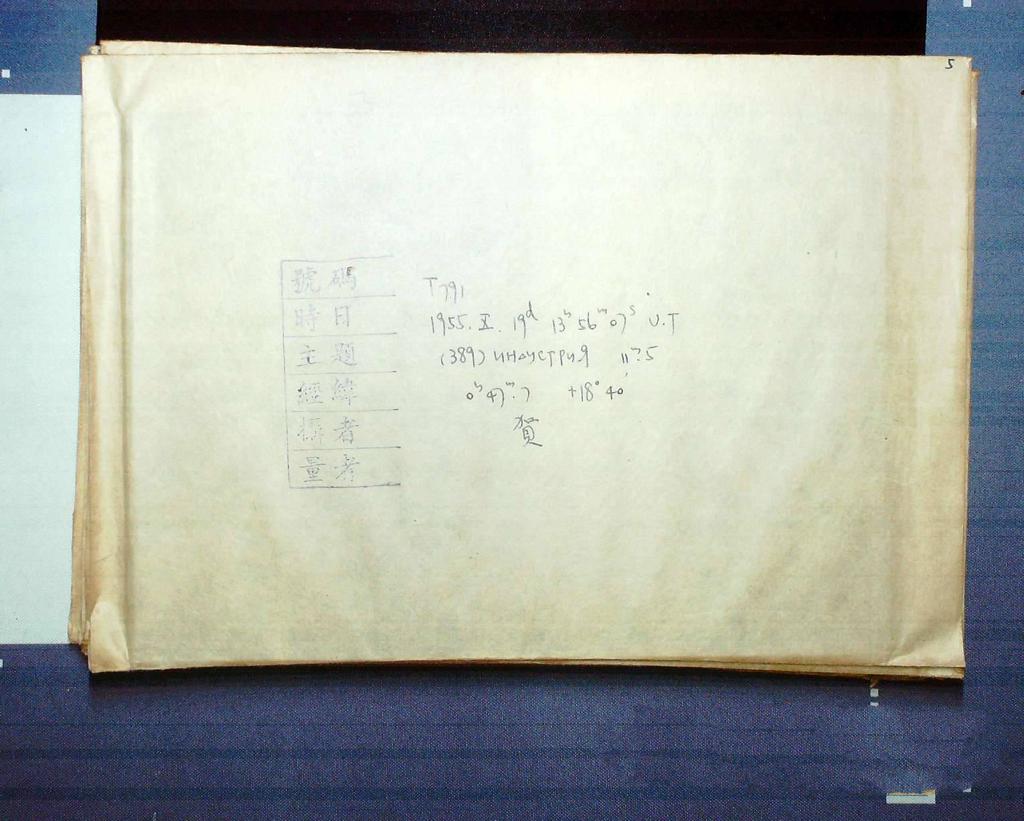 5
號碼 T791
時日 1955. X. 19ᵈ 13ʰ 56ᵐ 07ˢ U.T
主題 (389) индустрия 11ᵐ.5
經緯 0ʰ 47ᵐ.7 +18° 40'
攝者 賀
量者